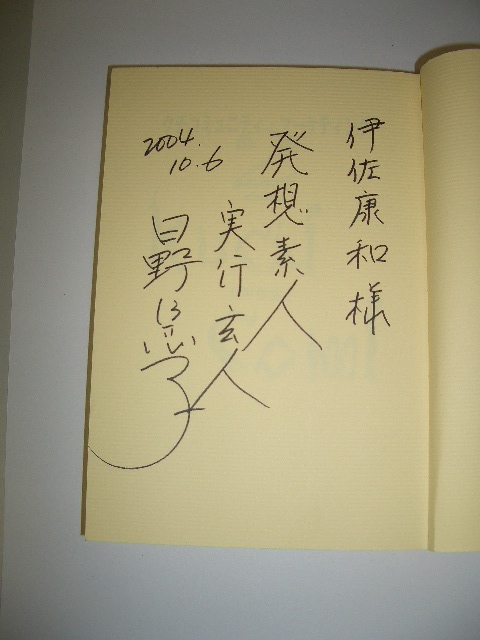 伊佐康和様
発想素人
実行玄人
2004.
10.6
日野